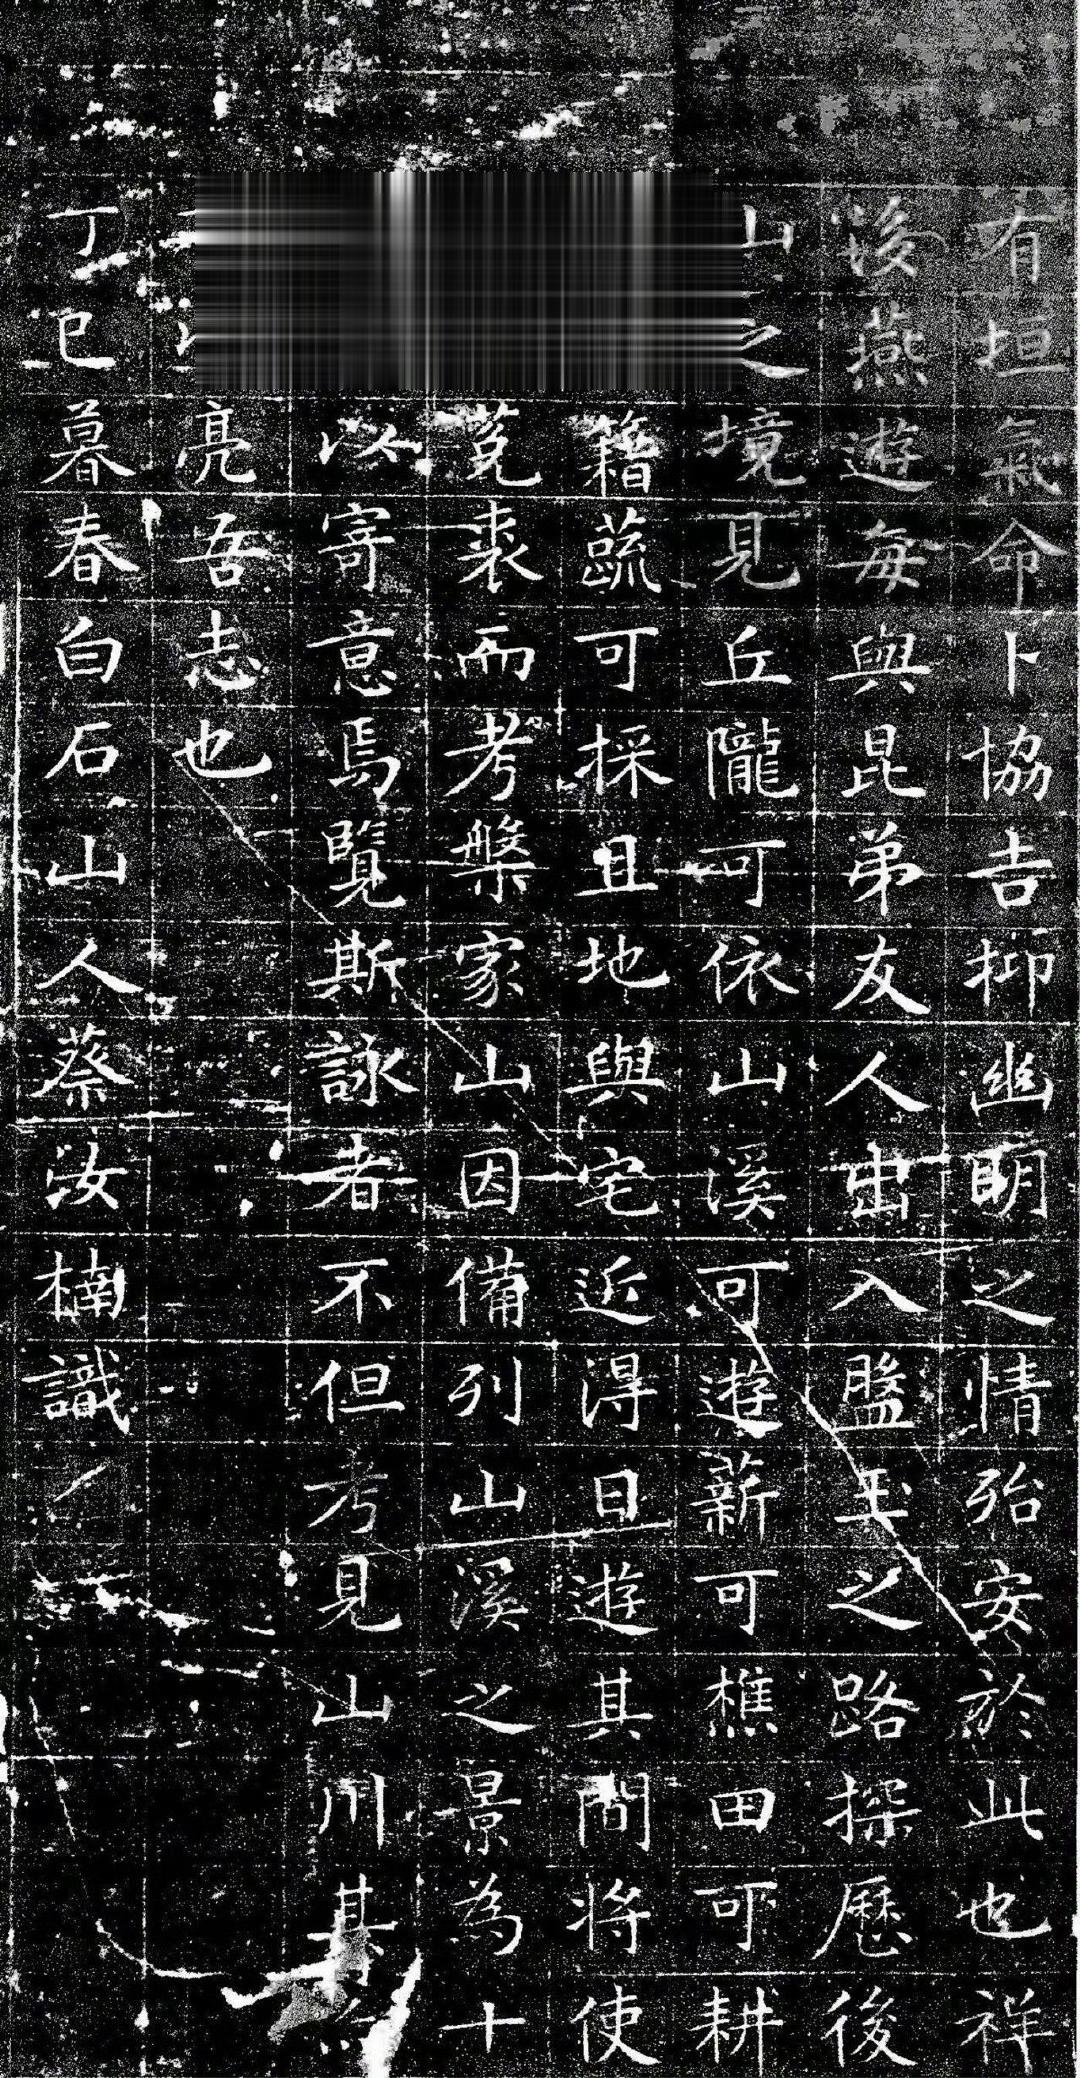 有垣氣命卜協吉抑幽明之情殆安於此也祥
後燕遊每與昆弟友人出入盤玉之路探歷後
山之境見丘隴可依山溪可遊薪可樵田可耕
籍蔬可採且地與宅近得日遊其間將使
菟裘而考槃家山因備列山溪之景為十
以寄意焉覽斯詠者不但考見山川其
亮吾志也
丁巳暮春白石山人蔡汝楠識